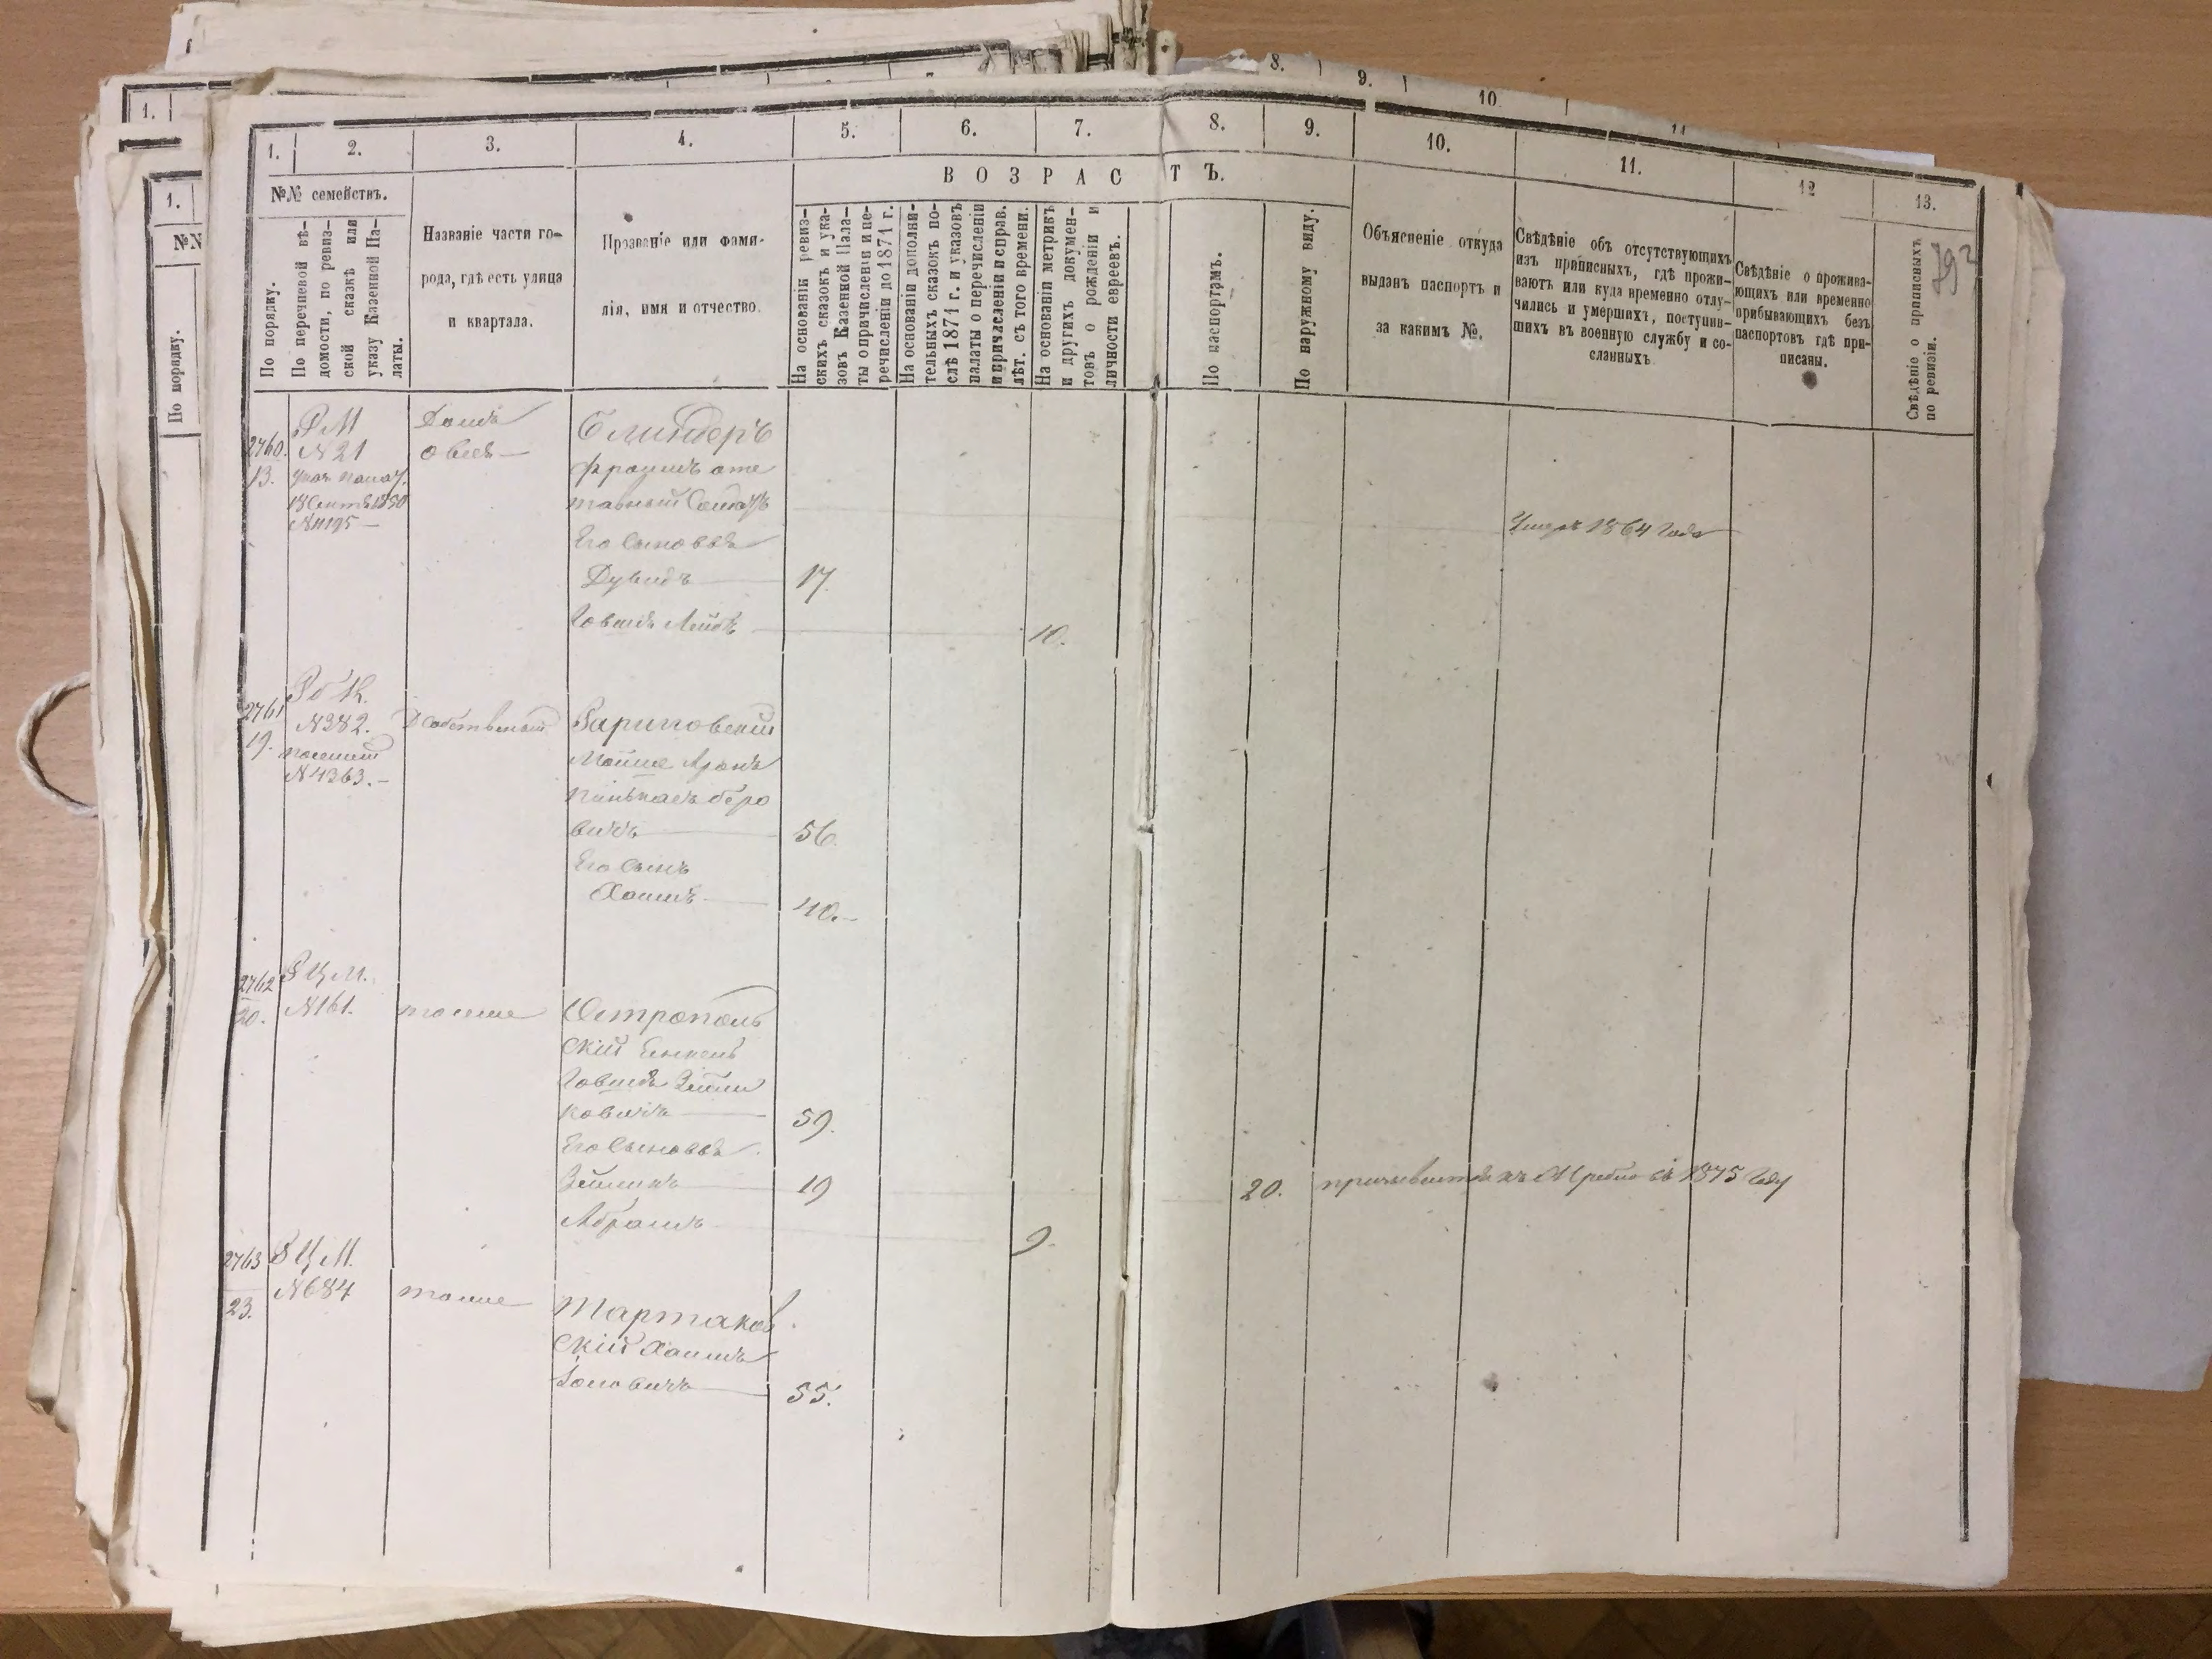 8. 9. 10. 11
1.
1. 2. 3. 4. 5. 6. 7. 8. 9. 10. 11. 12 13.
ВОЗРАСТЪ.
№№ семействъ.
По порядку.
По перечневой вѣ-
домости, по ревиз-
ской сказкѣ или
указу Казенной Па-
латы.
Названіе части го-
рода, гдѣ есть улица
и квартала.
Прозваніе или фами-
лія, имя и отчество.
На основаніи ревиз-
скихъ сказокъ и ука-
зовъ Казенной Пала-
ты о причисленіи и пе-
речисленіи до 1871 г.
На основаніи дополни-
тельныхъ сказокъ по-
слѣ 1871 г. и указовъ
палаты о перечисленіи
и причисленіи и справ.
лѣт. съ того времени.
На основаніи метрикъ
и другихъ докумен-
товъ о рожденіи и
личности евреевъ.
По паспортамъ.
По наружному виду.
Объясненіе откуда
выданъ паспортъ и
за какимъ №.
Свѣдѣніе объ отсутствующихъ
изъ приписныхъ, гдѣ прожи-
ваютъ или куда временно отлу-
чились и умершихъ, поступив-
шихъ въ военную службу и со-
сланныхъ.
Свѣдѣніе о прожива-
ющихъ или временно
прибывающихъ безъ
паспортовъ гдѣ при-
писаны.
Свѣдѣніе о приписныхъ
по ревизіи.
1.
№№
По порядку.
2760. РМ Домъ Блиндеръ
13. N21
тавный Солдатъ
N11195
Умеръ 1864 года
Его Сыновья
Дувидъ 17.
Іовшъ Лейбъ 10.
2761
19. N382. Собственный
N4363.
Мойше Аронъ
Пинькасъ беро
вичъ 56.
Его Сынъ
Хаимъ 40.
2762 РЦМ.
20. N161. тоже Острополь
скій
Іовшъ Зейли
ковичъ 59.
Его Сыновья.
Зейликъ 19 20. призывается къ жребію въ 1875 году
Абрамъ 9.
2763 РЦМ.
23. N684 тоже Тартаков
скій Хаимъ
55.